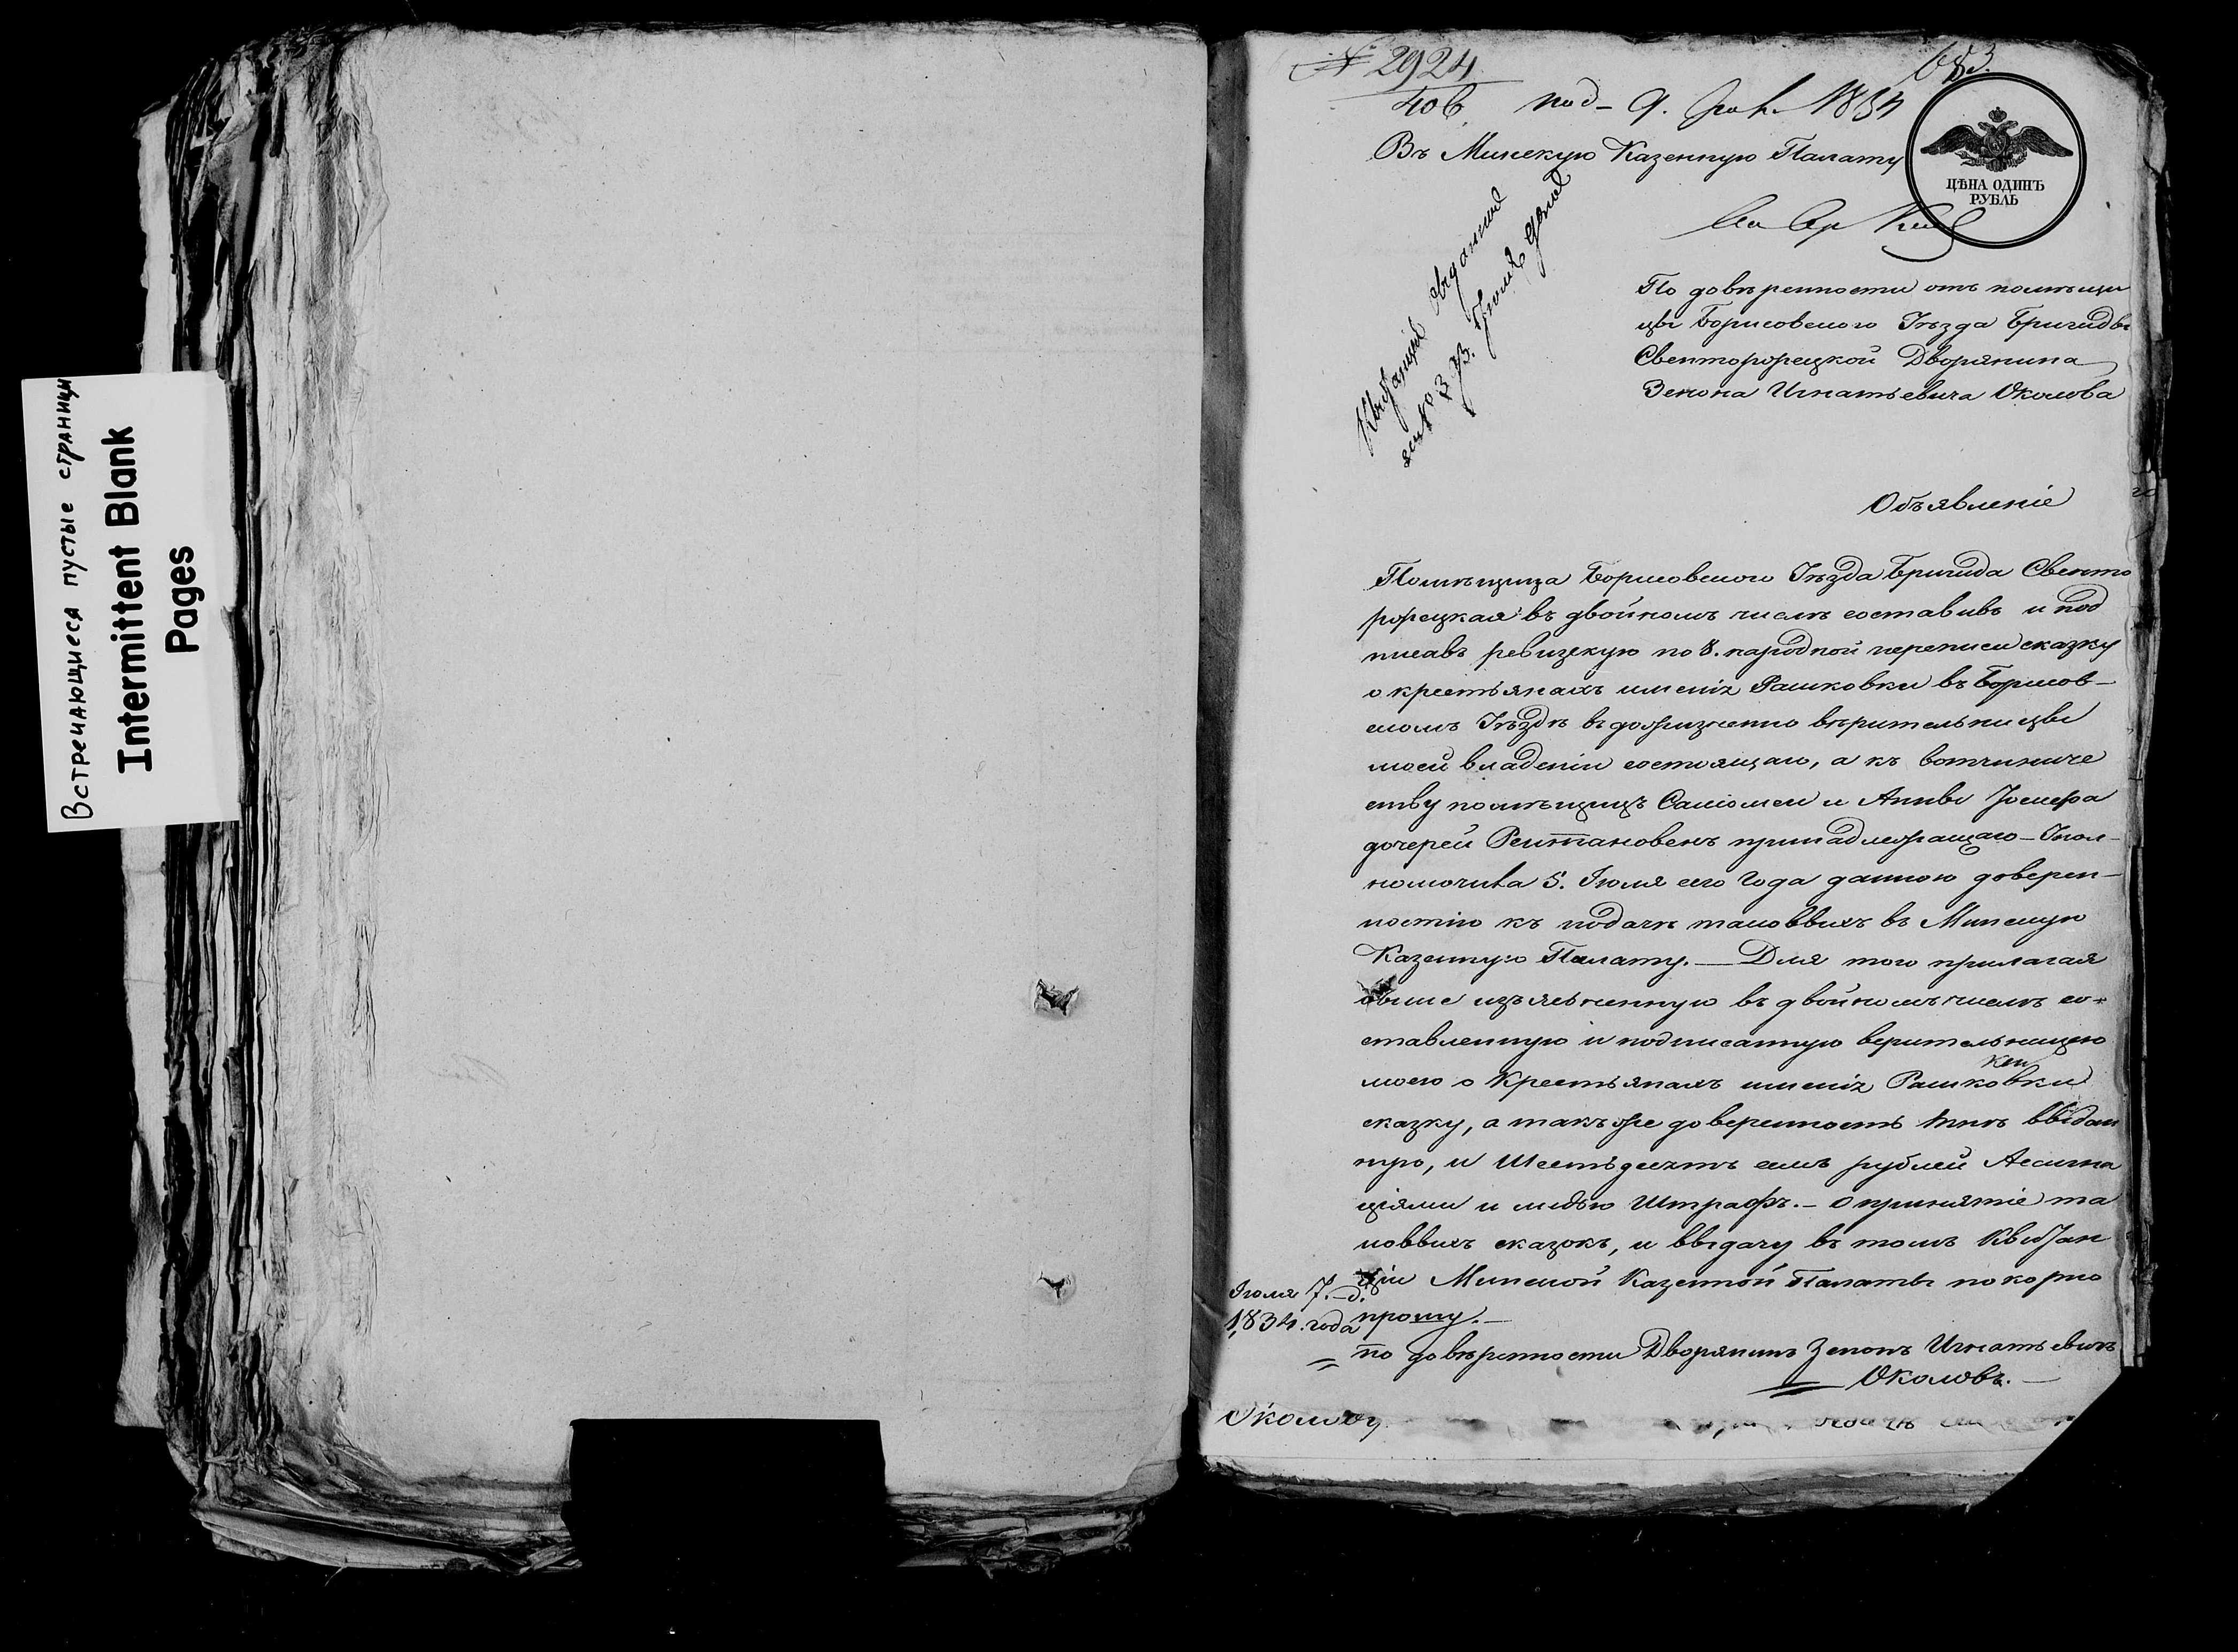 Встречающиеся пустые страницы
Intermittent Blank
Pages
№ 2924
683.
406. под- 9. 1834
Въ Минскую Казенную Палату
ЦѢНА ОДИНЪ
РУБЛЬ
Квитанція выдана
за № 373. Іюля дня
По довѣренности отъ помѣщи
цы Борисовского Уѣзда Бригиды
Свенторжецкой Дворянина
Зенона Игнатьевича Околова
Объявленіе
Помѣщица Борисовского Уѣзда Бригида Свенто
ржецкая въ двойномъ числѣ составивъ и под
писавъ ревизскую по 8. народной переписи сказку
о крестьянахъ имѣнія Рашковки въ Борисов-
скомъ Уѣздѣ въ доживенно вѣрительницы
моей владеніи состоящаго, а къ вотчиниче
ству помѣщицъ Саломеи и Анны Іосифа
дочерей Рейтановенъ принадлежащаго - Упол-
номочила 5. Іюля сего Года данною доверен-
ностію къ подачѣ таковвыхъ въ Минскую
Казенную Палату. — Для того прилагая
выше изъясненную въ двойномъ числѣ со-
ставленную и подписанную верительницею
моею о Крестьянахъ имѣнія Рашковки
ки
сказку, а такъ же доверенность мнѣ ввыдан
ную, и Шестьдесятъ рублей Ассигна
ціями и медью Штрафъ. - о принятіе та
ковыхъ сказокъ, и ввыдачу въ томъ Квитан
ціи Минской Казенной Палаты покорно
Іюля 7. д.
1834. года
прошу. —
по довѣренности Дворянинъ Зенонъ Игнатьевичъ
Околовъ. —
Околову